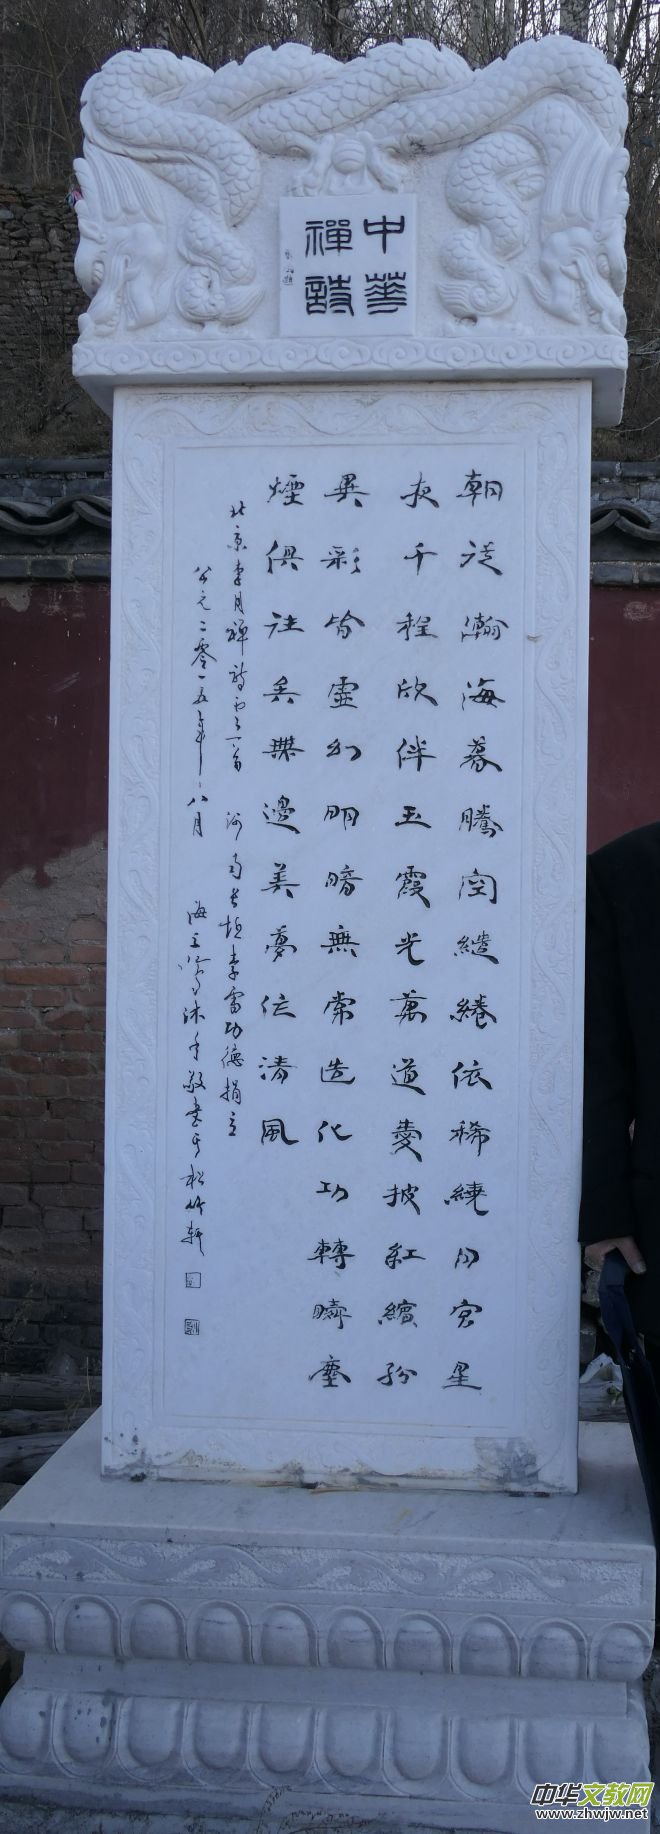 中華
禪詩
朝從瀚海暮騰空繾綣依稀繞月宮星
夜千程欣伴玉霞光萬道愛披紅繽紛
異彩皆虛幻明暗無常造化功轉瞬塵
煙俱往矣無邊美夢任清風
北京李月禪詩 河南長垣李雷功德捐立
公元二零一五年八月 海 沐手敬書于松竹軒
中华文教网
www.zhwjw.net